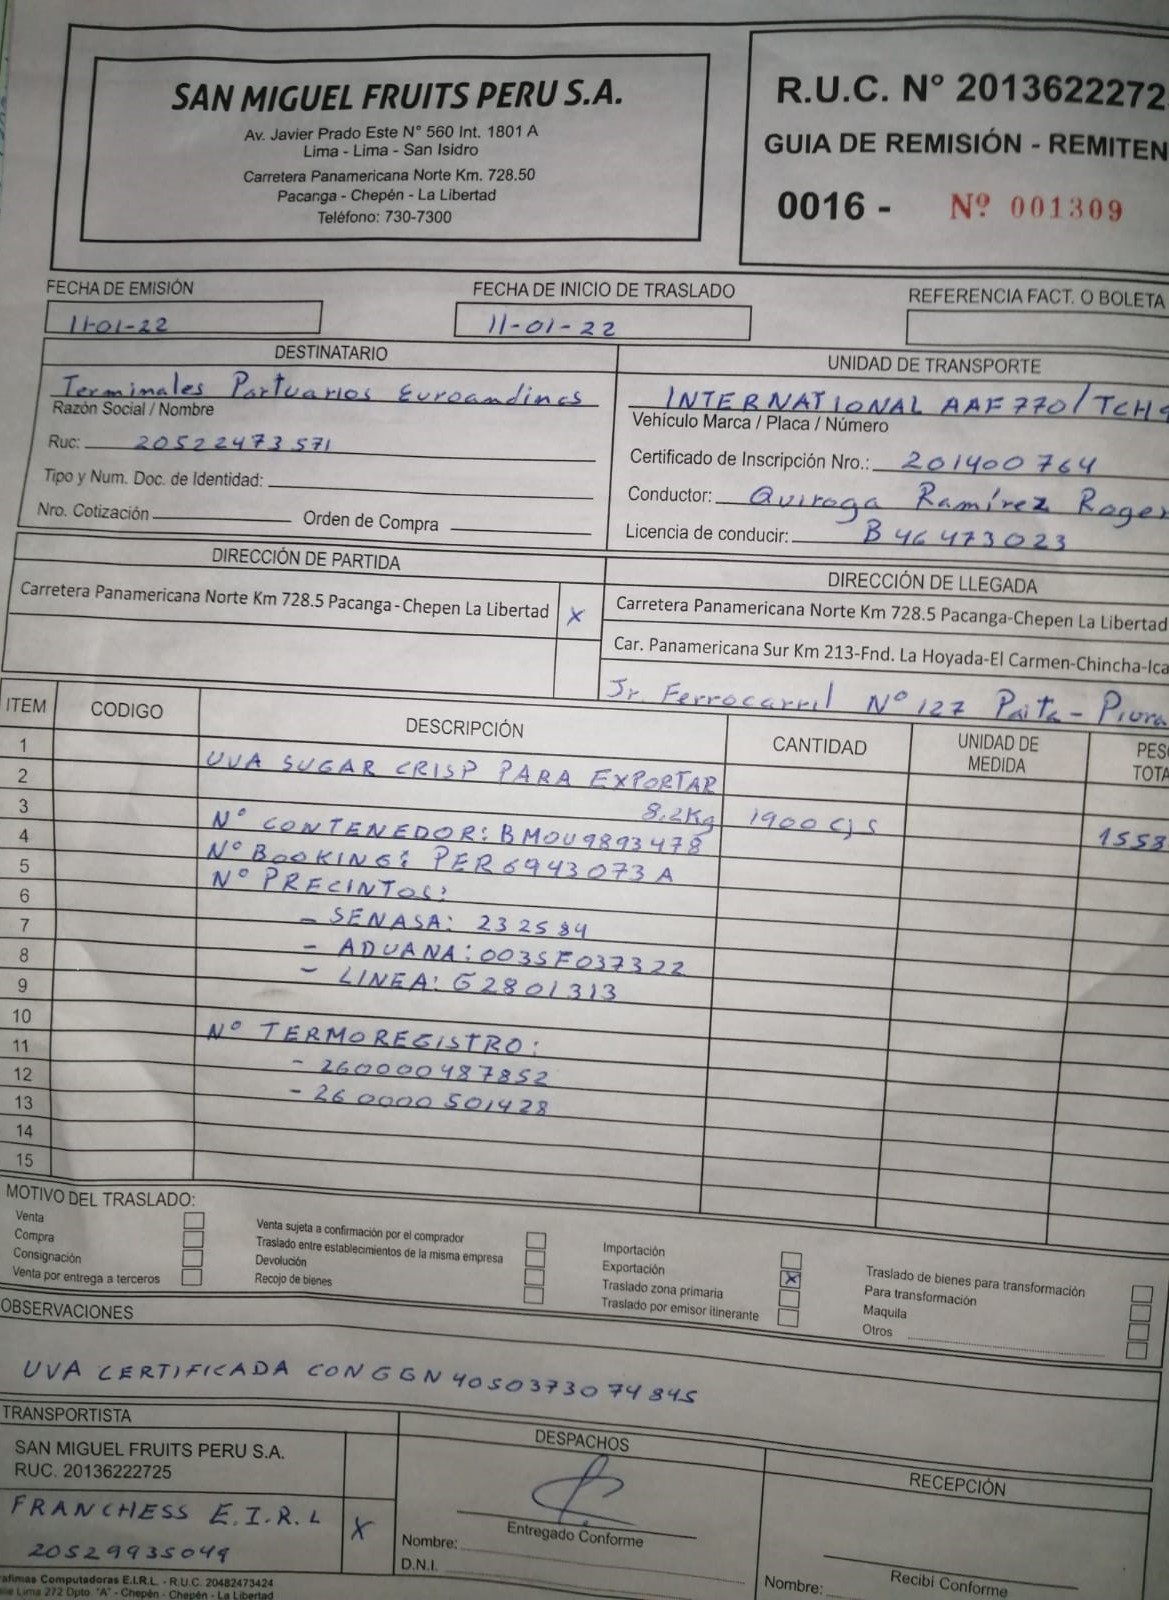 SAN MIGUEL FRUITS PERU S.A.
Av. Javier Prado Este N° 560 Int. 1801 A
Lima - Lima - San Isidro
Carretera Panamericana Norte Km. 728.50
Pacanga - Chepén - La Libertad
Teléfono: 730-7300
R.U.C. N° 2013622272
GUIA DE REMISIÓN - REMITEN
0016 - Nº 001309
FECHA DE EMISIÓN
11-01-22
FECHA DE INICIO DE TRASLADO
11-01-22
REFERENCIA FACT. O BOLETA
DESTINATARIO
Terminales Portuarios Euroandinos
Razón Social / Nombre
Ruc: 20522473571
Tipo y Num. Doc. de Identidad:
Nro. Cotización Orden de Compra
UNIDAD DE TRANSPORTE
INTERNATIONAL AAF770/TCH9
Vehículo Marca / Placa / Número
Certificado de Inscripción Nro.: 201400764
Conductor: Quiroga Ramírez Roger
Licencia de conducir: B46473023
DIRECCIÓN DE PARTIDA
Carretera Panamericana Norte Km 728.5 Pacanga-Chepen La Libertad X
DIRECCIÓN DE LLEGADA
Carretera Panamericana Norte Km 728.5 Pacanga-Chepen La Libertad
Car. Panamericana Sur Km 213-Fnd. La Hoyada-El Carmen-Chincha-Ica
Jr. Ferrocarril N° 127 Paita - Piura
ITEM CODIGO DESCRIPCIÓN CANTIDAD UNIDAD DE MEDIDA PESO TOTA
1
2 UVA SUGAR CRISP PARA EXPORTAR
3 8.2Kg 1900 cjs 1558
4 N° CONTENEDOR: BMOU9893478
5 N° BOOKING: PER6943073A
6 N° PRECINTOS:
7 - SENASA: 232584
8 - ADUANA: 0035F037322
9 - LINEA: G2801313
10
11 N° TERMOREGISTRO:
12 - 260000487852
13 - 260000501428
14
15
MOTIVO DEL TRASLADO:
Venta
Compra
Consignación
Venta por entrega a terceros
Venta sujeta a confirmación por el comprador
Traslado entre establecimientos de la misma empresa
Devolución
Recojo de bienes
Importación
Exportación X
Traslado zona primaria
Traslado por emisor itinerante
Traslado de bienes para transformación
Para transformación
Maquila
Otros
OBSERVACIONES
UVA CERTIFICADA CON GGN 4050373074845
TRANSPORTISTA
SAN MIGUEL FRUITS PERU S.A.
RUC. 20136222725
FRANCHESS E.I.R.L X
20529935049
DESPACHOS
Entregado Conforme
Nombre:
D.N.I.
RECEPCIÓN
Recibí Conforme
Nombre:
afimas Computadoras E.I.R.L. - R.U.C. 20482473424
lle Lima 272 Dpto. "A" - Chepén - Chepén - La Libertad